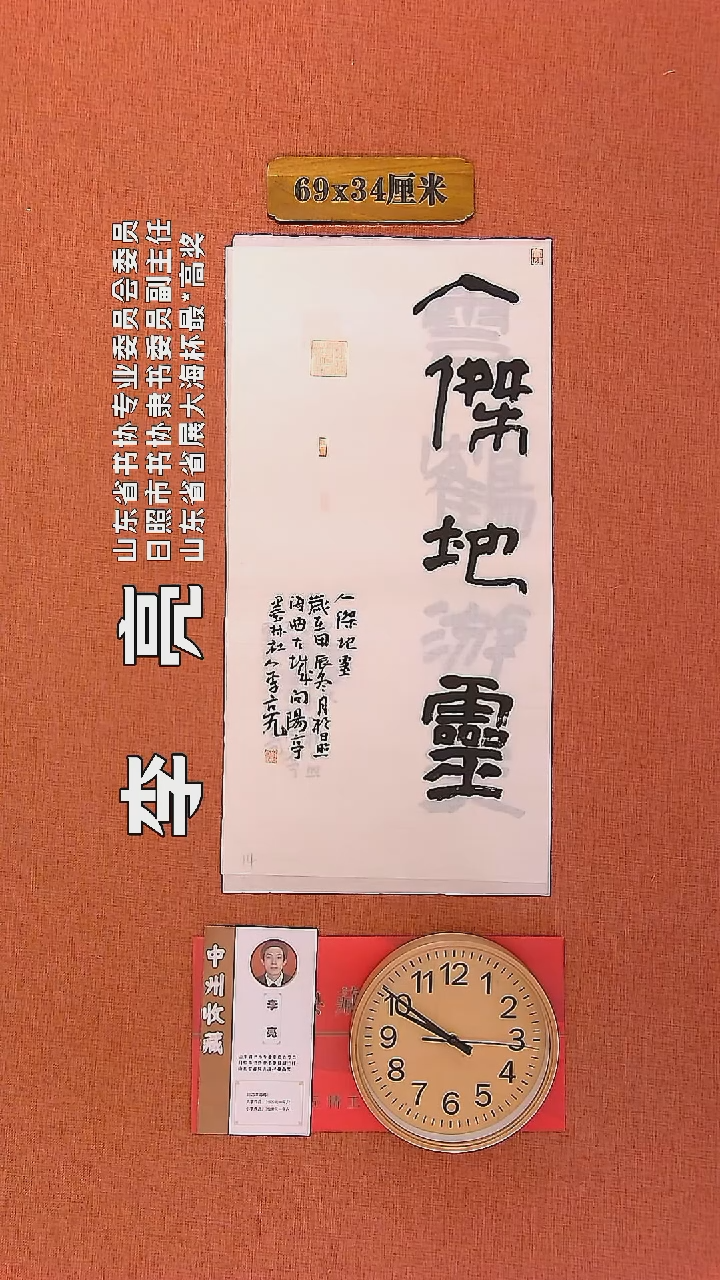 69x34厘米
山东省书协专业委员会委员
日照市书协隶书委员副主任
山东省省展大海杯最*高奖
李 亮
人傑地靈
人傑地靈
歲在甲辰冬月於日照
海曲古城向陽亭
墨林社人李亮
中军收藏
李 亮
12
1
2
3
4
5
6
7
8
9
10
11